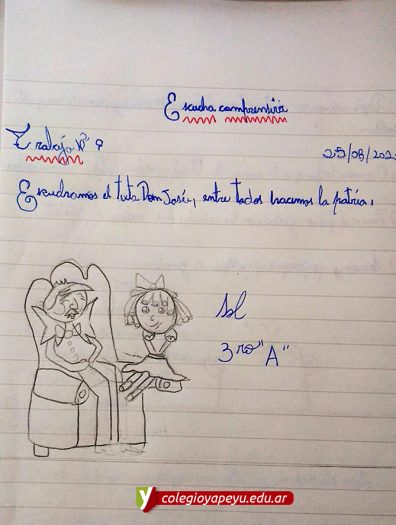 Escucha comprensiva
Trabajo N° 9
25/08/202
Escuchamos el tuto Don José, entre todos hacemos la patria.
3ro "A"
colegioyapeyu.edu.ar